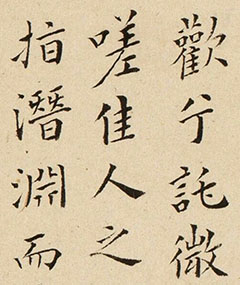 歡兮託微
嗟佳人之
指潛淵而